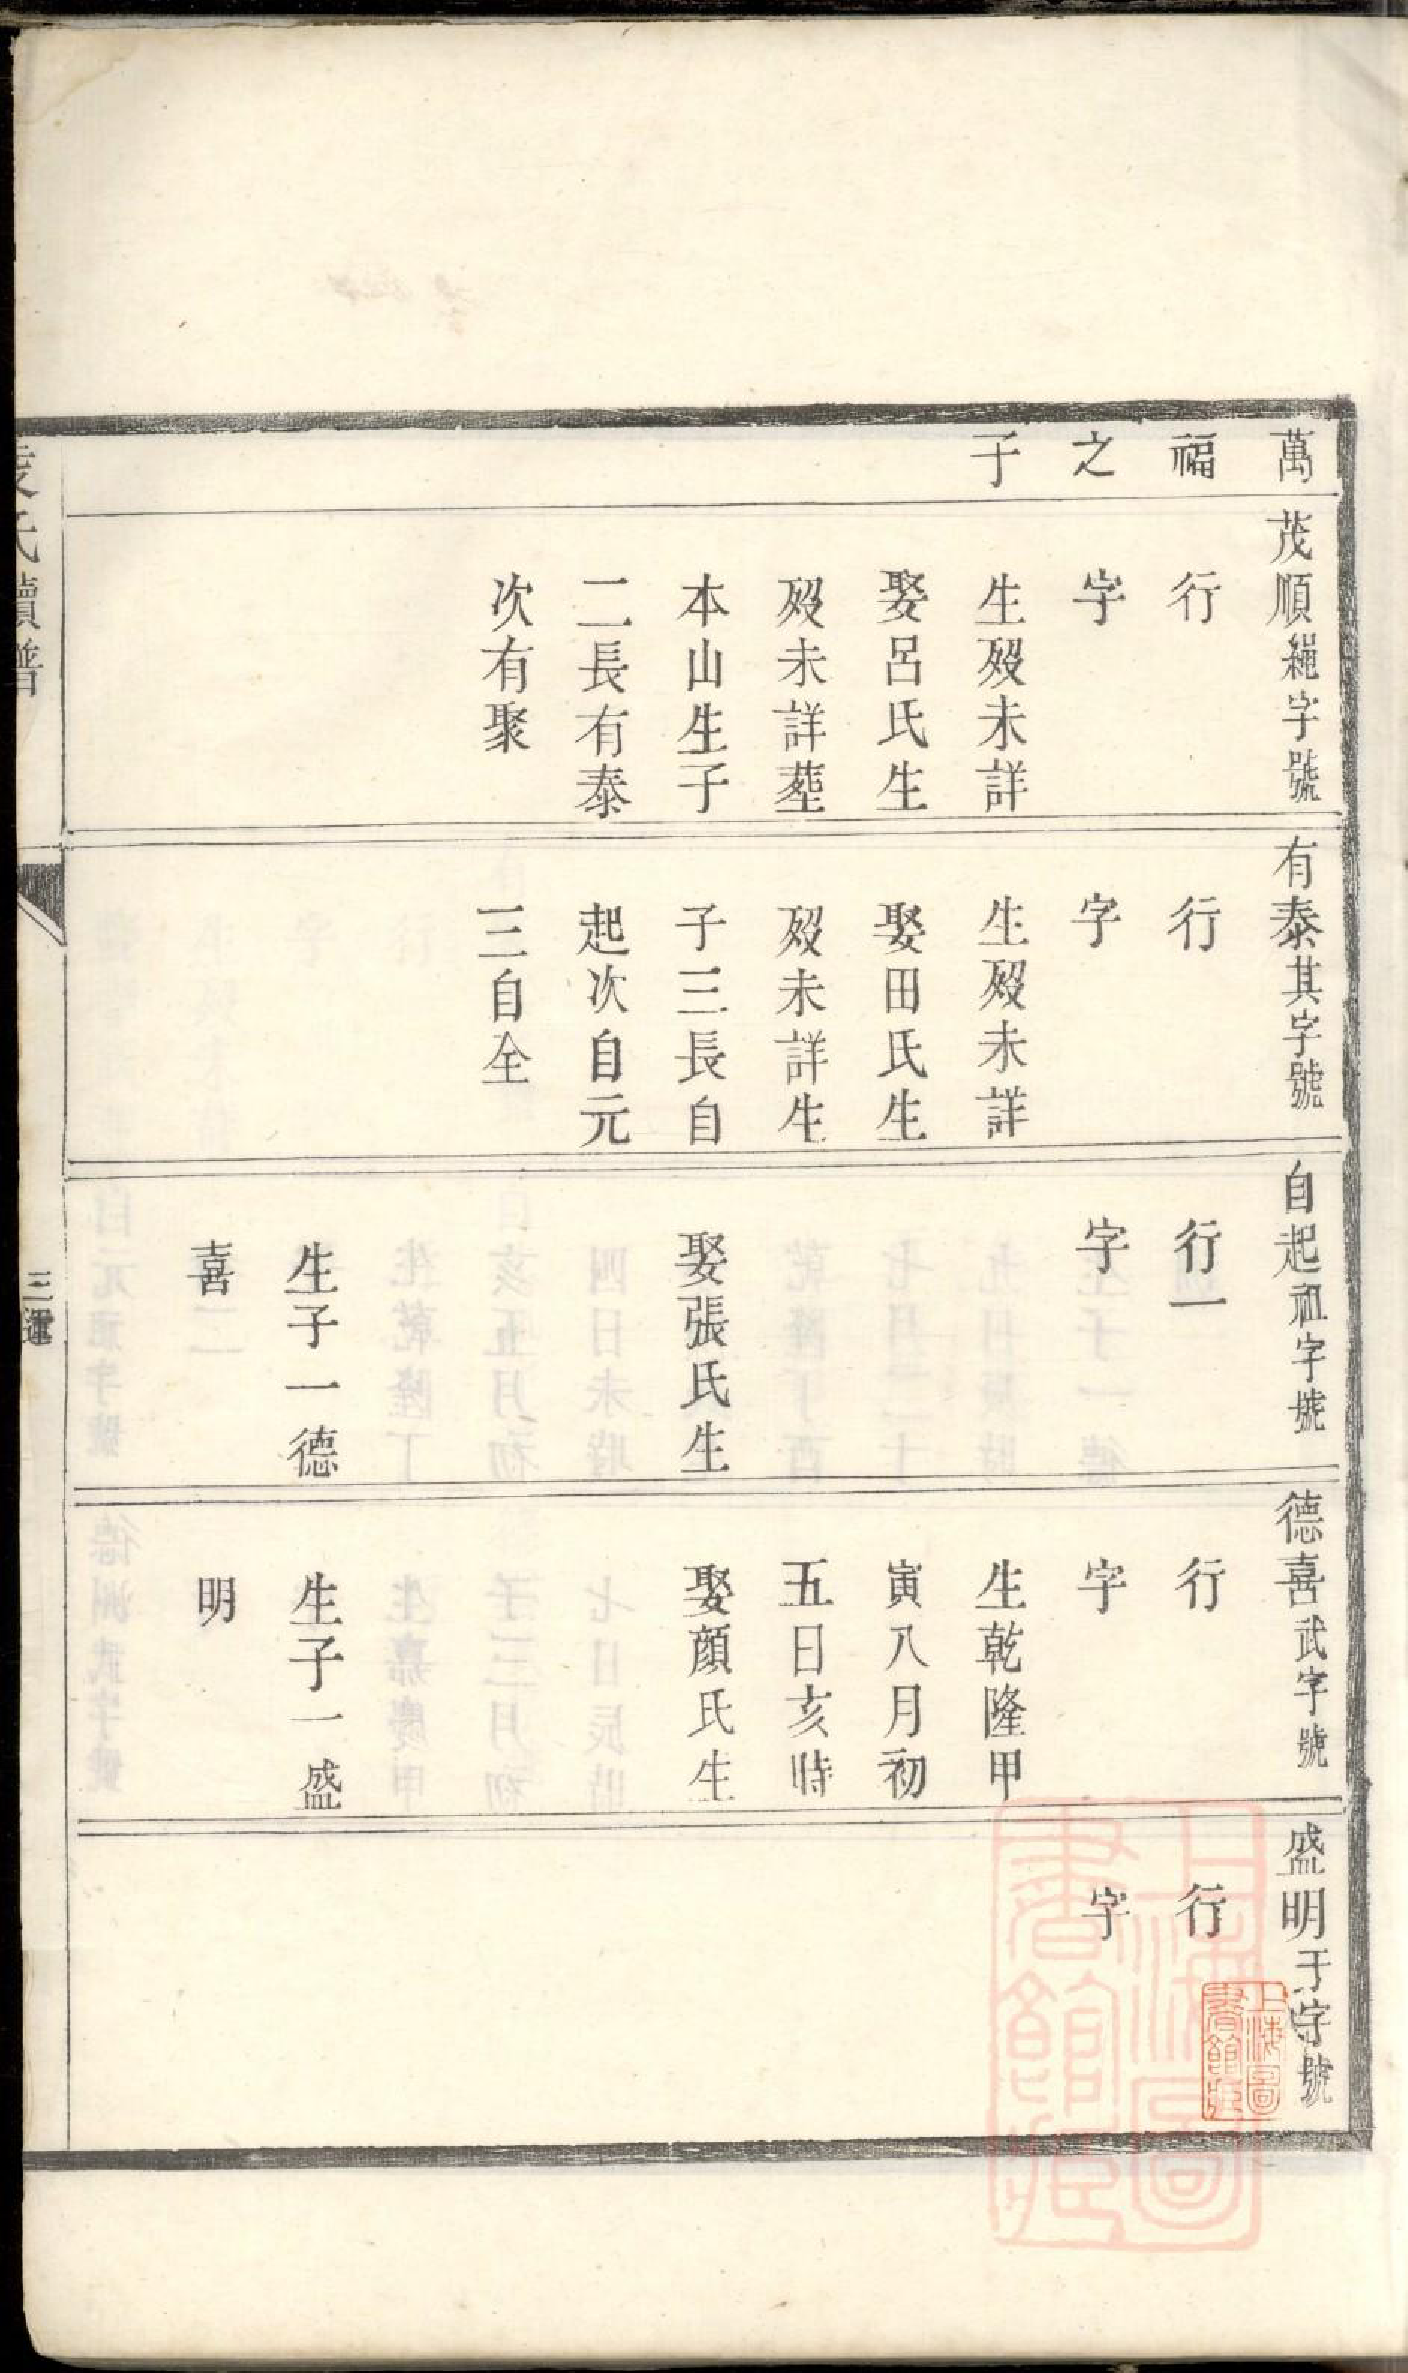 萬
福
之
子
茂順繩字號
行
字
生殁未詳
娶呂氏生
殁未詳塟
本山生子
二長有泰
次有聚
有泰其字號
行
字
生殁未詳
娶田氏生
殁未詳生
子三長自
起次自元
三自全
自起祖字號
行一
字
娶張氏生
生子一德
喜
德喜武字號
行
字
生乾隆甲
寅八月初
五日亥時
娶顏氏生
生子一盛
明
盛明于字號
行
字
氏續譜
三運
上海圖
書館藏
上海圖
書館藏